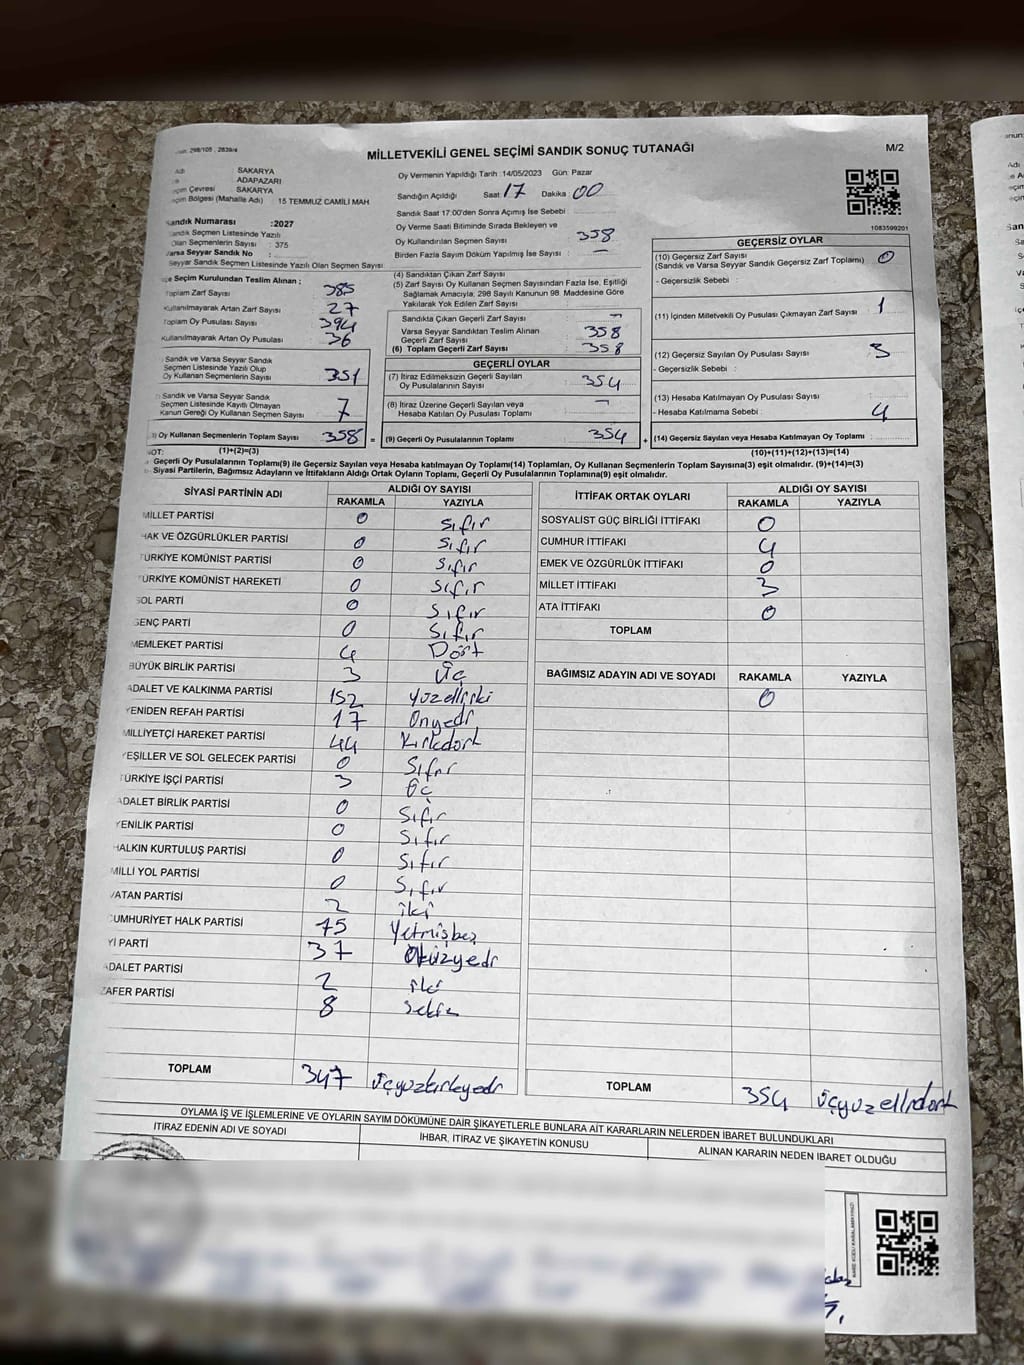 298/105 , 2839/4
MİLLETVEKİLİ GENEL SEÇİMİ SANDIK SONUÇ TUTANAĞI
M/2
Adı SAKARYA
ADAPAZARI
Seçim Çevresi SAKARYA
Seçim Bölgesi (Mahalle Adı) 15 TEMMUZ CAMİLİ MAH
Sandık Numarası :2027
Sandık Seçmen Listesinde Yazılı
Olan Seçmenlerin Sayısı : 375
Varsa Seyyar Sandık No :
Seyyar Sandık Seçmen Listesinde Yazılı Olan Seçmen Sayısı
Oy Vermenin Yapıldığı Tarih :14/05/2023 Gün: Pazar
Sandığın Açıldığı Saat: 17 Dakika: 00
Sandık Saat 17:00'den Sonra Açımış İse Sebebi :
Oy Verme Saati Bitiminde Sırada Bekleyen ve
Oy Kullandırılan Seçmen Sayısı 358
Birden Fazla Sayım Döküm Yapılmış İse Sayısı : –
1083599201
İlçe Seçim Kurulundan Teslim Alınan ;
Toplam Zarf Sayısı 385
Kullanılmayarak Artan Zarf Sayısı 27
Toplam Oy Pusulası Sayısı 394
Kullanılmayarak Artan Oy Pusulası 36
Sandık ve Varsa Seyyar Sandık
Seçmen Listesinde Yazılı Olup
Oy Kullanan Seçmenlerin Sayısı 351
Sandık ve Varsa Seyyar Sandık
Seçmen Listesinde Kayıtlı Olmayan
Kanun Gereği Oy Kullanan Seçmen Sayısı 7
Oy Kullanan Seçmenlerin Toplam Sayısı 358 =
(1)+(2)=(3)
(4) Sandıktan Çıkan Zarf Sayısı
(5) Zarf Sayısı Oy Kullanan Seçmen Sayısından Fazla İse, Eşitliği
Sağlamak Amacıyla; 298 Sayılı Kanunun 98. Maddesine Göre
Yakılarak Yok Edilen Zarf Sayısı
Sandıkta Çıkan Geçerli Zarf Sayısı –
Varsa Seyyar Sandıktan Teslim Alınan
Geçerli Zarf Sayısı 358
(6) Toplam Geçerli Zarf Sayısı 358
GEÇERLİ OYLAR
(7) İtiraz Edilmeksizin Geçerli Sayılan
Oy Pusulalarının Sayısı 354
(8) İtiraz Üzerine Geçerli Sayılan veya
Hesaba Katılan Oy Pusulası Toplamı –
(9) Geçerli Oy Pusulalarının Toplamı 354 +
GEÇERSİZ OYLAR
(10) Geçersiz Zarf Sayısı 0
(Sandık ve Varsa Seyyar Sandık Geçersiz Zarf Toplamı)
- Geçersizlik Sebebi :
(11) İçinden Milletvekili Oy Pusulası Çıkmayan Zarf Sayısı 1
(12) Geçersiz Sayılan Oy Pusulası Sayısı 3
- Geçersizlik Sebebi :
(13) Hesaba Katılmayan Oy Pusulası Sayısı
- Hesaba Katılmama Sebebi : 4
(14) Geçersiz Sayılan veya Hesaba Katılmayan Oy Toplamı :
(10)+(11)+(12)+(13)=(14)
NOT:
Geçerli Oy Pusulalarının Toplamı(9) ile Geçersiz Sayılan veya Hesaba katılmayan Oy Toplam(14) Toplamları, Oy Kullanan Seçmenlerin Toplam Sayısına(3) eşit olmalıdır. (9)+(14)=(3)
- Siyasi Partilerin, Bağımsız Adayların ve İttifakların Aldığı Ortak Oyların Toplamı, Geçerli Oy Pusulalarının Toplamına(9) eşit olmalıdır.
SİYASİ PARTİNİN ADI ALDIĞI OY SAYISI
RAKAMLA YAZIYLA
MİLLET PARTİSİ 0 Sıfır
HAK VE ÖZGÜRLÜKLER PARTİSİ 0 Sıfır
TÜRKİYE KOMÜNİST PARTİSİ 0 Sıfır
TÜRKİYE KOMÜNİST HAREKETİ 0 Sıfır
SOL PARTİ 0 Sıfır
GENÇ PARTİ 0 Sıfır
MEMLEKET PARTİSİ 4 Dört
BÜYÜK BİRLİK PARTİSİ 3 Üç
ADALET VE KALKINMA PARTİSİ 152 Yüzelliiki
YENİDEN REFAH PARTİSİ 17 Onyedi
MİLLİYETÇİ HAREKET PARTİSİ 44 Kırkdört
YEŞİLLER VE SOL GELECEK PARTİSİ 0 Sıfır
TÜRKİYE İŞÇİ PARTİSİ 3 Üç
ADALET BİRLİK PARTİSİ 0 Sıfır
YENİLİK PARTİSİ 0 Sıfır
HALKIN KURTULUŞ PARTİSİ 0 Sıfır
MİLLİ YOL PARTİSİ 0 Sıfır
VATAN PARTİSİ 2 iki
CUMHURİYET HALK PARTİSİ 75 Yetmişbeş
İYİ PARTİ 37 Otuzyedi
ADALET PARTİSİ 2 iki
ZAFER PARTİSİ 8 Sekiz
TOPLAM 347 Üçyüzkırkyedi
İTTİFAK ORTAK OYLARI ALDIĞI OY SAYISI
RAKAMLA YAZIYLA
SOSYALİST GÜÇ BİRLİĞİ İTTİFAKI 0
CUMHUR İTTİFAKI 4
EMEK VE ÖZGÜRLÜK İTTİFAKI 0
MİLLET İTTİFAKI 3
ATA İTTİFAKI 0
TOPLAM
BAĞIMSIZ ADAYIN ADI VE SOYADI RAKAMLA YAZIYLA
0
TOPLAM 354 Üçyüzellidört
OYLAMA İŞ VE İŞLEMLERİNE VE OYLARIN SAYIM DÖKÜMÜNE DAİR ŞİKAYETLERLE BUNLARA AİT KARARLARIN NELERDEN İBARET BULUNDUKLARI
İTİRAZ EDENİN ADI VE SOYADI
İHBAR, İTİRAZ VE ŞİKAYETİN KONUSU
ALINAN KARARIN NEDEN İBARET OLDUĞU